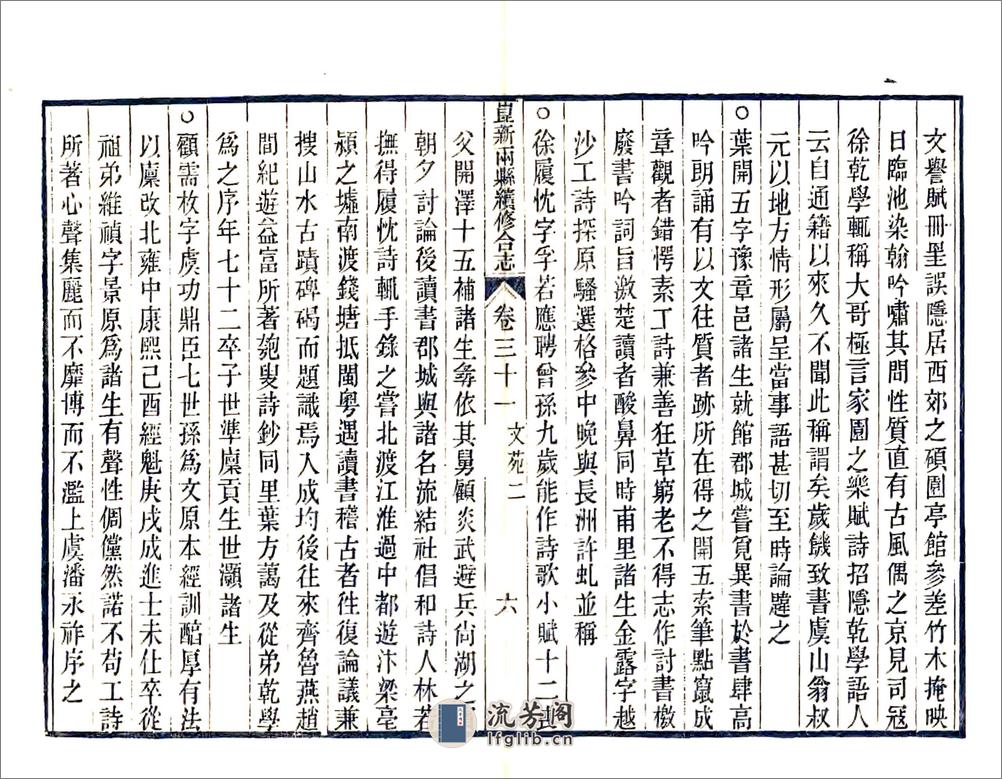 文譽賦冊罣誤隱居西郊之碩園亭館參差竹木掩映
日臨池染翰吟嘯其間性質直有古風偶之京見司寇
徐乾學輒稱大哥極言家園之樂賦詩招隱乾學語人
云自通籍以來久不聞此稱謂矣歲饑致書虞山翁叔
元以地方情形屬呈當事語甚切至時論韙之
○葉開五字豫章邑諸生就館郡城嘗覓異書於書肆高
吟朗誦有以文往質者跡所在得之開五索筆點竄成
章觀者錯愕素工詩兼善狂草窮老不得志作討書檄
廢書吟詞旨激楚讀者酸鼻同時甫里諸生金露字越
沙工詩探原騷選格參中晚與長洲許虬並稱
○徐履忱字孚若應聘曾孫九歲能作詩歌小賦十二
崑新兩縣續修合志 卷三十一 文苑二 六
父開澤十五補諸生彜依其舅顧炎武避兵尙湖之
朝夕討論後讀書郡城與諸名流結社倡和詩人林若
撫得履忱詩輒手錄之嘗北渡江淮過中都遊汴梁亳
潁之墟南渡錢塘抵閩粵遇讀書稽古者徃復論議兼
搜山水古蹟碑碣而題識焉入成均後往來齊魯燕趙
間紀遊益富所著匏叟詩鈔同里葉方藹及從弟乾學
爲之序年七十二卒子世準廩貢生世灝諸生
○顧需枚字虞功鼎臣七世孫爲文原本經訓醅厚有法
以廩改北雍中康熙己酉經魁庚戌成進士未仕卒從
祖弟維禎字景原爲諸生有聲性倜儻然諾不苟工詩
所著心聲集麗而不靡博而不濫上虞潘永祚序之
流芳阁
lfglib.cn